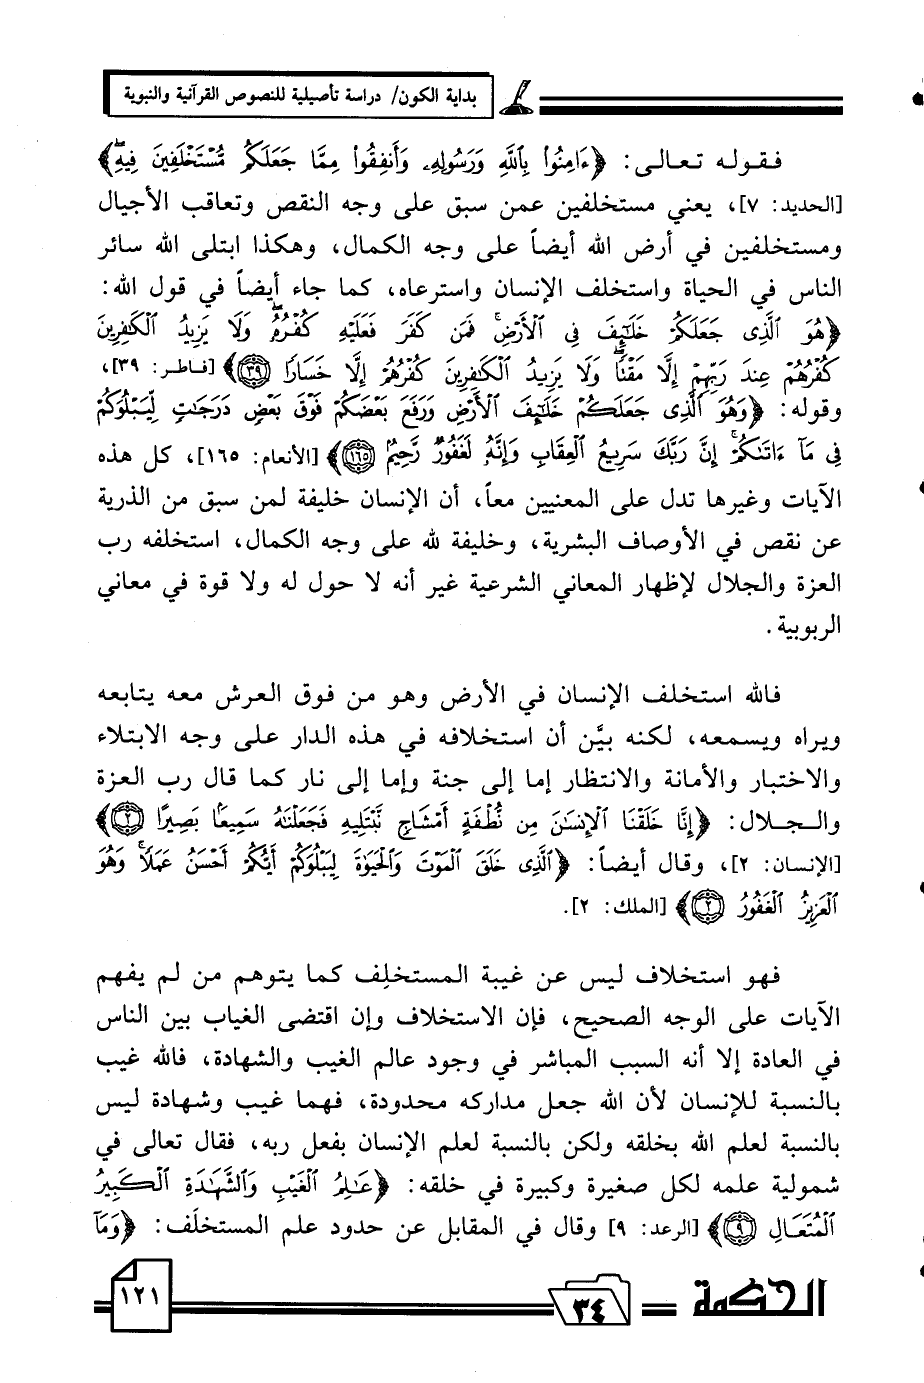 بداية الكون/ دراسة تأصيلية للنصوص القرآنية والنبوية
فقوله تعالى: ﴿ءَامِنُوا۟ بِٱللَّهِ وَرَسُولِهِۦ وَأَنفِقُوا۟ مِمَّا جَعَلَكُم مُّسْتَخْلَفِينَ فِيهِۖ﴾
[الحديد: ٧]، يعني مستخلفين عمن سبق على وجه النقص وتعاقب الأجيال
ومستخلفين في أرض الله أيضاً على وجه الكمال، وهكذا ابتلى الله سائر
الناس في الحياة واستخلف الإنسان واسترعاه، كما جاء أيضاً في قول الله:
﴿هُوَ ٱلَّذِى جَعَلَكُمْ خَلَٰٓئِفَ فِى ٱلْأَرْضِۚ فَمَن كَفَرَ فَعَلَيْهِ كُفْرُهُۥۖ وَلَا يَزِيدُ ٱلْكَٰفِرِينَ
كُفْرُهُمْ عِندَ رَبِّهِمْ إِلَّا مَقْتًاۖ وَلَا يَزِيدُ ٱلْكَٰفِرِينَ كُفْرُهُمْ إِلَّا خَسَارًا ٣٩﴾ [فاطر: ٣٩]،
وقوله: ﴿وَهُوَ ٱلَّذِى جَعَلَكُمْ خَلَٰٓئِفَ ٱلْأَرْضِ وَرَفَعَ بَعْضَكُمْ فَوْقَ بَعْضٍ دَرَجَٰتٍ لِّيَبْلُوَكُمْ
فِى مَآ ءَاتَىٰكُمْۗ إِنَّ رَبَّكَ سَرِيعُ ٱلْعِقَابِ وَإِنَّهُۥ لَغَفُورٌ رَّحِيمٌۢ ١٦٥﴾ [الأنعام: ١٦٥]، كل هذه
الآيات وغيرها تدل على المعنيين معاً، أن الإنسان خليفة لمن سبق من الذرية
عن نقص في الأوصاف البشرية، وخليفة لله على وجه الكمال، استخلفه رب
العزة والجلال لإظهار المعاني الشرعية غير أنه لا حول له ولا قوة في معاني
الربوبية.
فالله استخلف الإنسان في الأرض وهو من فوق العرش معه يتابعه
ويراه ويسمعه، لكنه بيَّن أن استخلافه في هذه الدار على وجه الابتلاء
والاختبار والأمانة والانتظار إما إلى جنة وإما إلى نار كما قال رب العزة
والجلال: ﴿إِنَّا خَلَقْنَا ٱلْإِنسَٰنَ مِن نُّطْفَةٍ أَمْشَاجٍ نَّبْتَلِيهِ فَجَعَلْنَٰهُ سَمِيعًۢا بَصِيرًا ٢﴾
[الإنسان: ٢]، وقال أيضاً: ﴿ٱلَّذِى خَلَقَ ٱلْمَوْتَ وَٱلْحَيَوٰةَ لِيَبْلُوَكُمْ أَيُّكُمْ أَحْسَنُ عَمَلًاۚ وَهُوَ
ٱلْعَزِيزُ ٱلْغَفُورُ ٢﴾ [الملك: ٢].
فهو استخلاف ليس عن غيبة المستخلِف كما يتوهم من لم يفهم
الآيات على الوجه الصحيح، فإن الاستخلاف وإن اقتضى الغياب بين الناس
في العادة إلا أنه السبب المباشر في وجود عالم الغيب والشهادة، فالله غيب
بالنسبة للإنسان لأن الله جعل مداركه محدودة، فهما غيب وشهادة ليس
بالنسبة لعلم الله بخلقه ولكن بالنسبة لعلم الإنسان بفعل ربه، فقال تعالى في
شمولية علمه لكل صغيرة وكبيرة في خلقه: ﴿عَٰلِمُ ٱلْغَيْبِ وَٱلشَّهَٰدَةِ ٱلْكَبِيرُ
ٱلْمُتَعَالِ ٩﴾ [الرعد: ٩] وقال في المقابل عن حدود علم المستخلَف: ﴿وَمَآ
الحكمة ٣٤ ١٢١